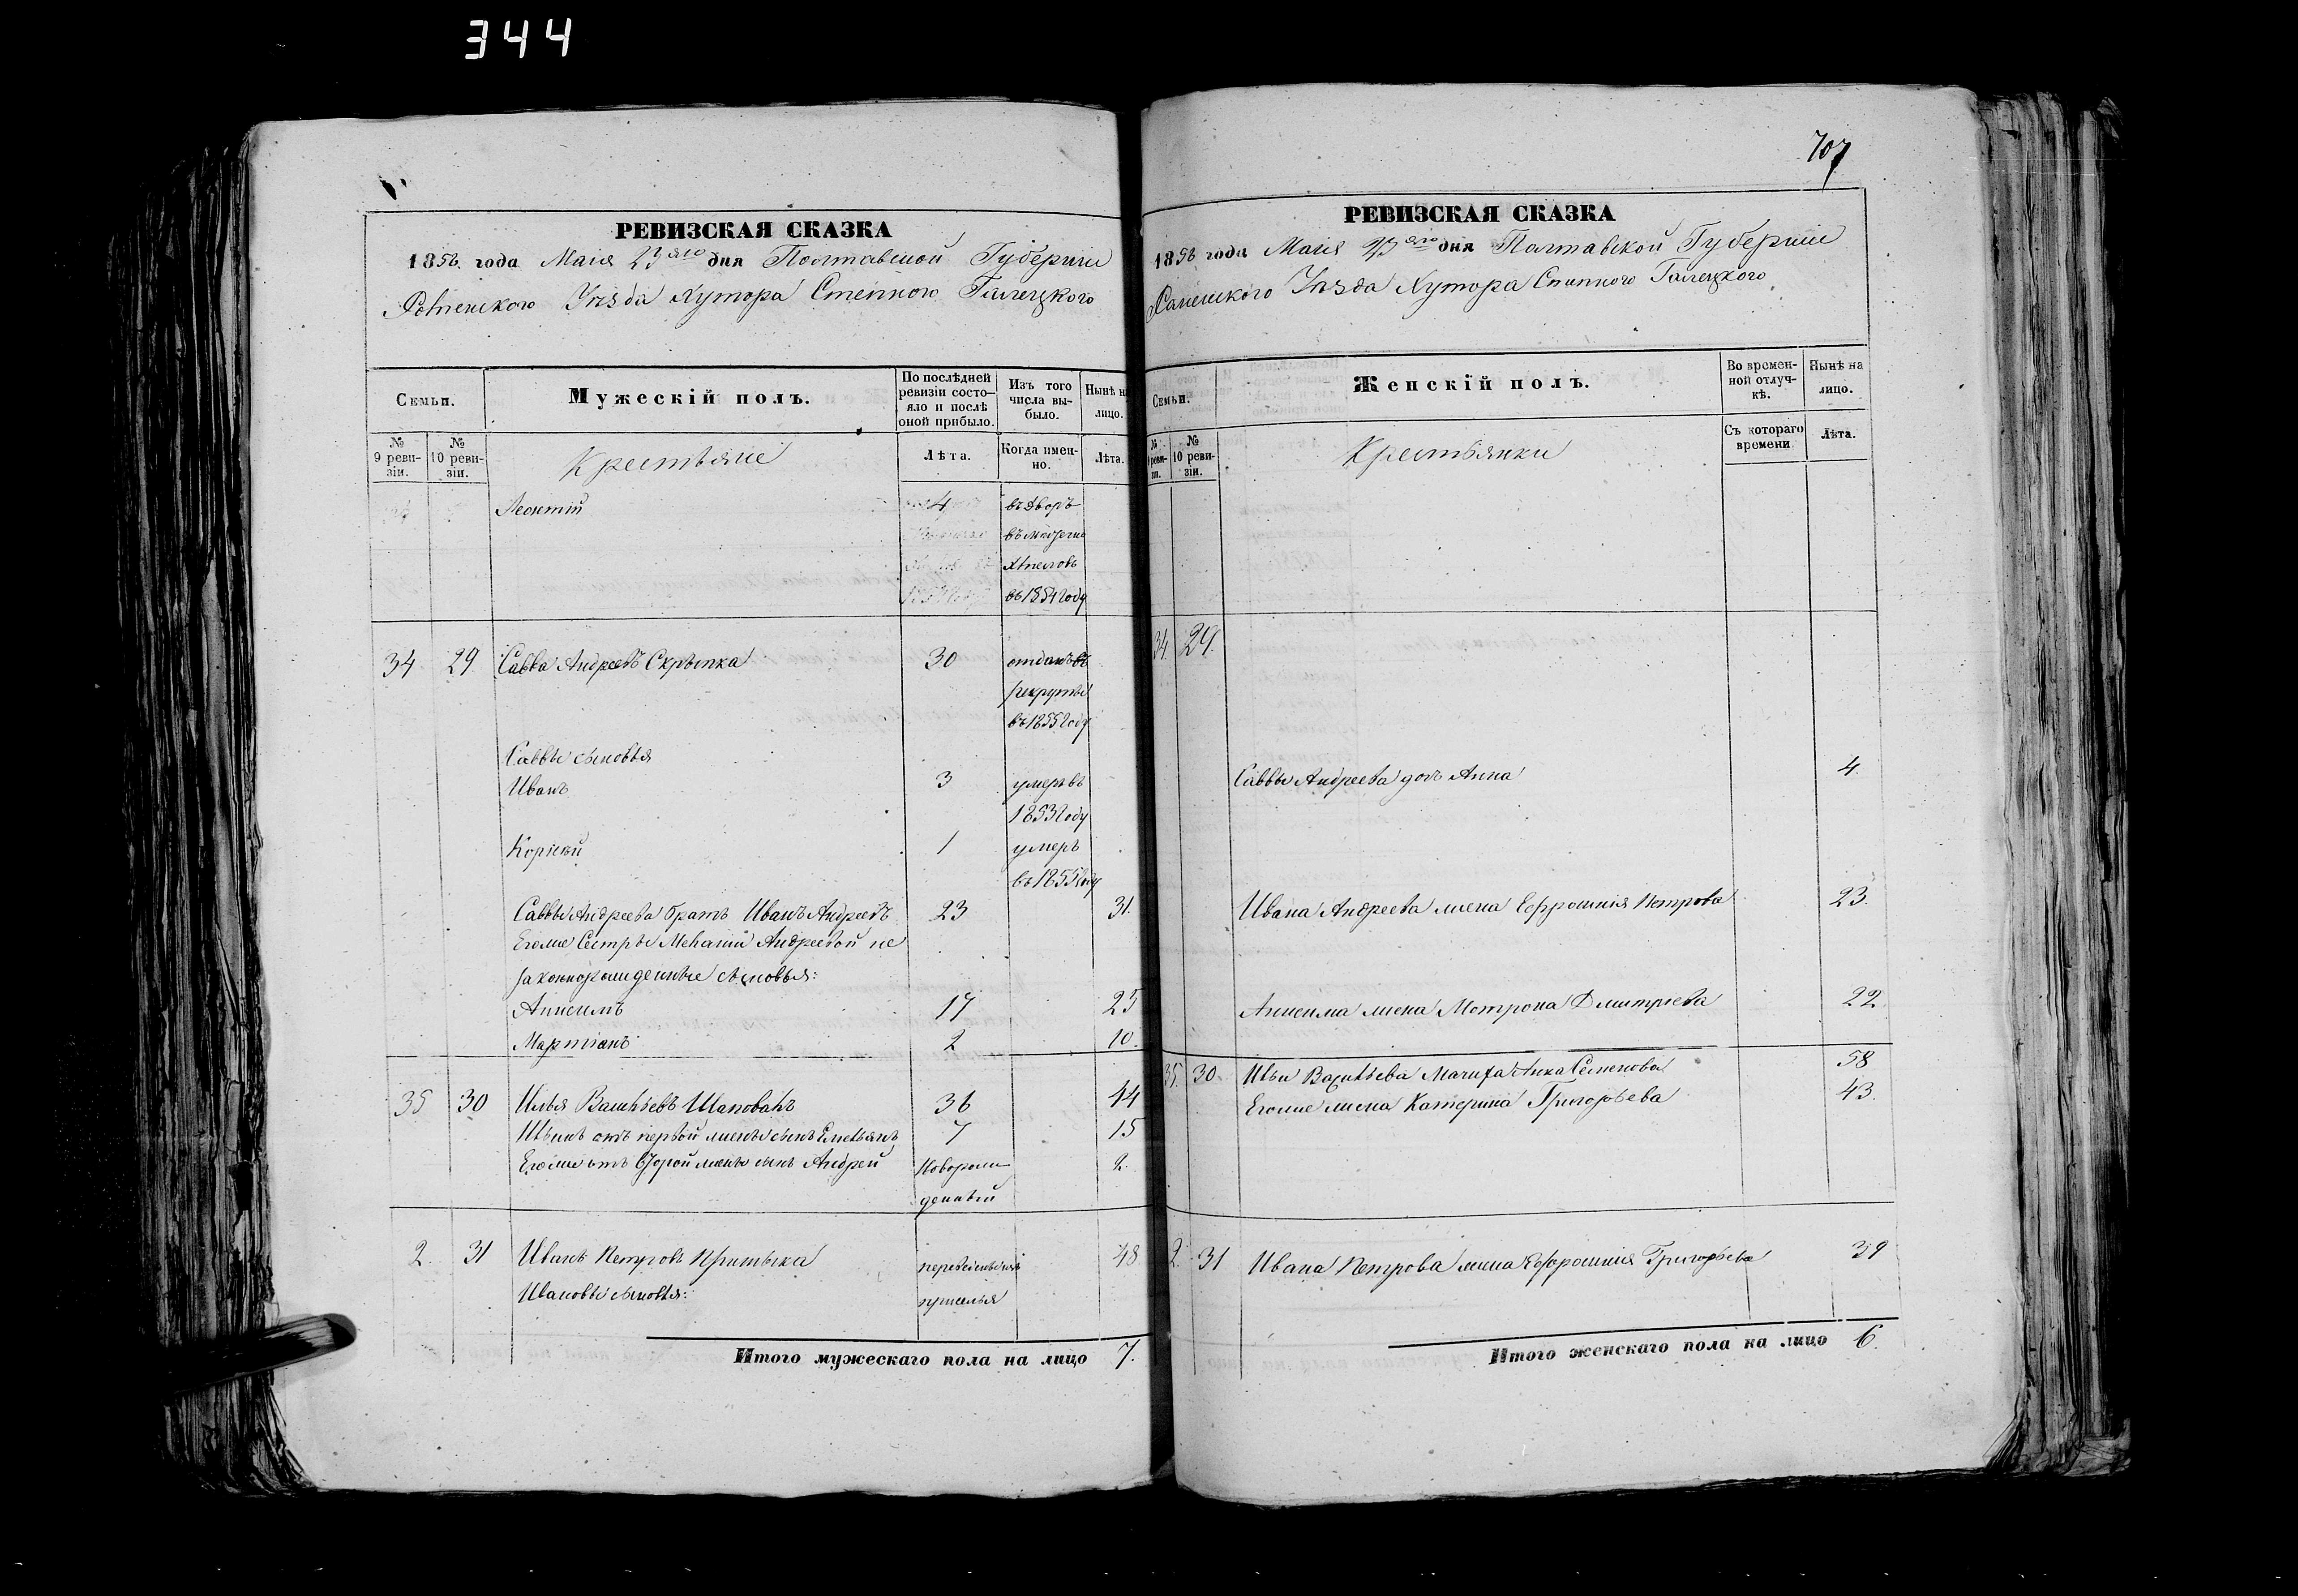 344
РЕВИЗСКАЯ СКАЗКА
1856. года Маія 23 аго дня Полтавской Губерніи
Роменского Уѣзда Хутора Степного Галецкого
Семьи.
Мужескій полъ.
По послѣдней ревизіи состо-
яло и послѣ
оной прибыло.
Изъ того
числа вы-
было.
Нынѣ на
лицо.
№
9 реви-
зіи.
№
10 реви-
зіи.
Крестьяне
Лѣта.
Когда имен-
но.
Лѣта.
Леонтій 4 въ дворъ
въ 1854 году
34 29 Савва Андреевъ Скрыпка 30 отданъ въ
рекруты
въ 1855 году
Саввы сыновья
Иванъ 3 умеръ въ
1853 году
Корній 1 умеръ
въ 1855 году
Саввы Андреева братъ Иванъ Андреевъ 23 31.
Егоже Сестры Меланіи Андреевой не
законнорожденные сыновья:
Анисимъ 17 25
Мартіянъ 2 10.
35 30 Илья Васильевъ Шаповалъ 36 44
Ильинъ отъ первой жены сынъ Емельянъ 7 15
Егоже отъ второй жены сынъ Андрей Новорож- 2.
денный
2. 31 Иванъ Петровъ Притыка 48
Ивановы сыновья:
Итого мужескаго пола на лицо 7.
707
РЕВИЗСКАЯ СКАЗКА
1856 года Маія 23 аго дня Полтавской Губерніи
Роменского Уѣзда Хутора Степного Галецкого
Семьи.
Женскій полъ.
Во времен-
ной отлуч-
кѣ.
Нынѣ на
лицо.
№
9 реви-
зіи.
№
10 реви-
зіи.
Крестьянки
Съ котораго
времени
Лѣта.
34. 29.
Саввы Андреева дочь Анна 4.
Ивана Андреева жена Ефросинія Петрова 23.
Анисима жена Мотрона Дмитріева 22
35. 30 Ильи Васильева Мачиха Анна Семенова 58
Егоже жена Катерина Григорьева 43.
2. 31 Ивана Петрова жена Ефросинія Григорьева 39
Итого женскаго пола на лицо 6.